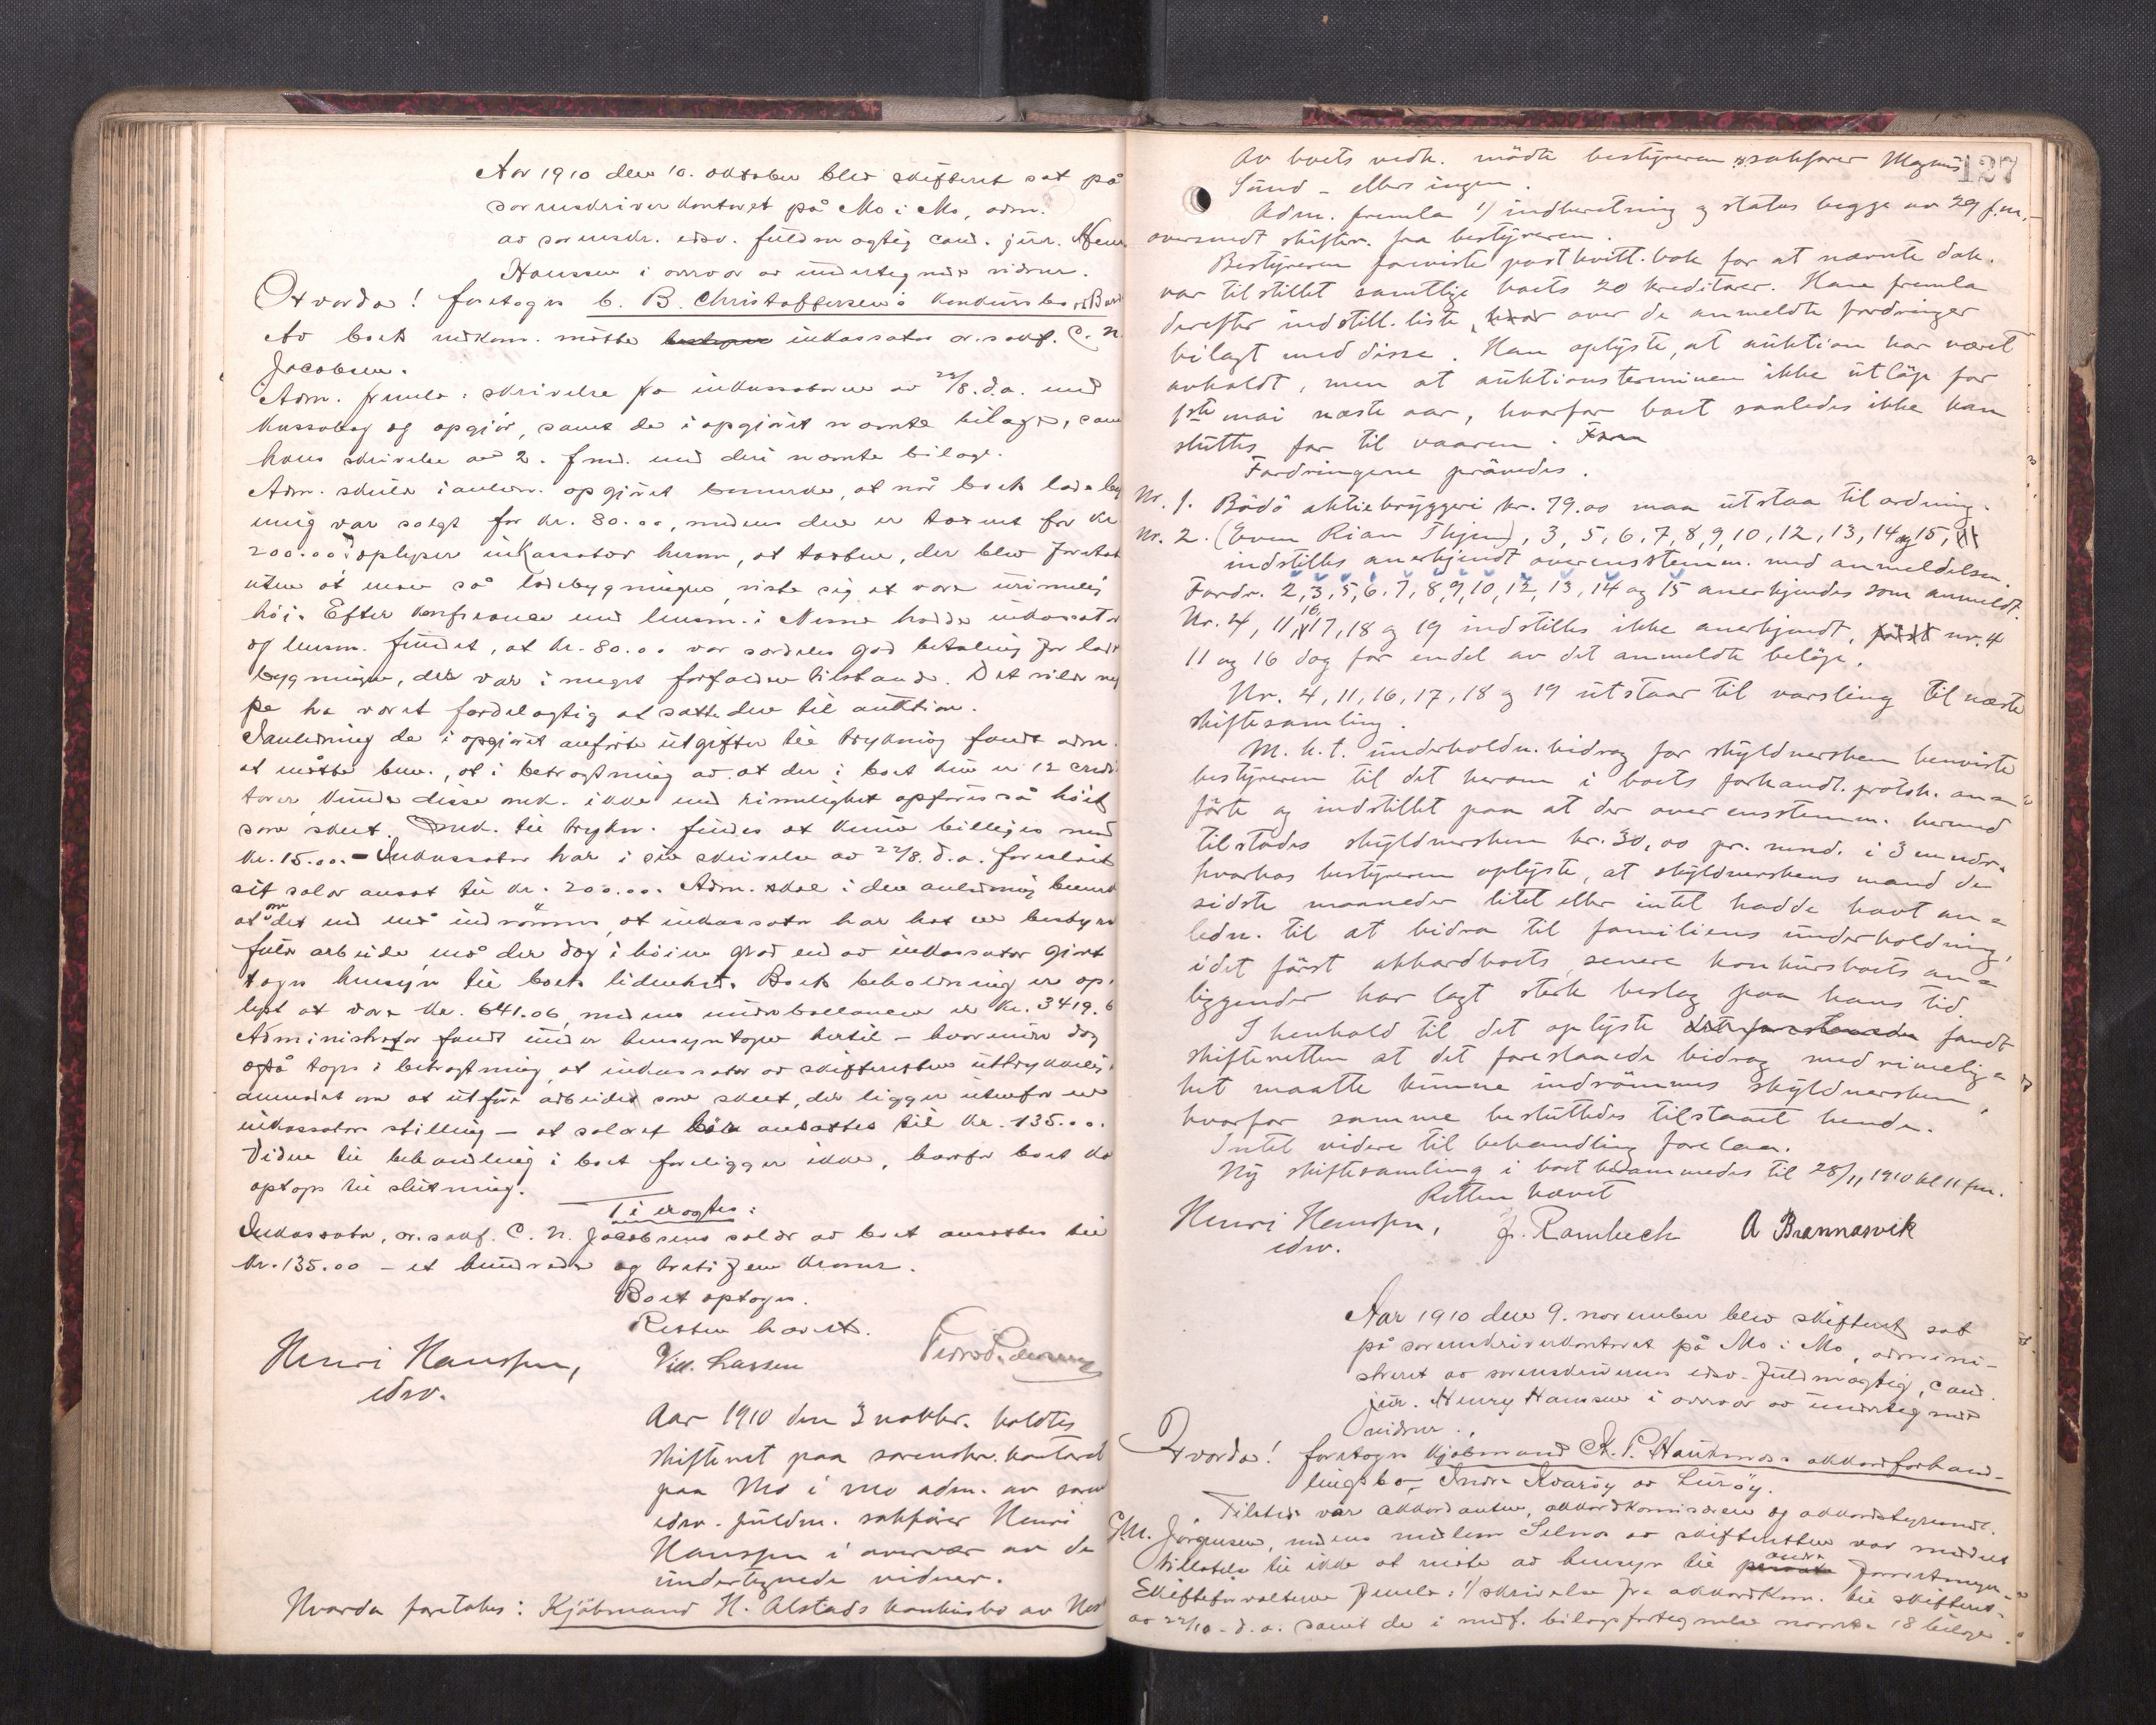 Aar 1910 den 10. oktober blev skifteret sat på
sorenskriverkontoret på Mo i Mo, adm.
av sorenskr. edsv. fuldmægtig cand. jur. Henr.
Hanssen i overvær av undertegnede vidner.
Hvorda! foretoges C. B. Christoffersens konkursbo,
Av boets vedkom. mötte inkassator o.r.sakf. C. N.
Jacobsen.
Adm. fremla: skrivelse fra inkassatoren av 22/8. d.a. med
kassabog og opgjör, samt de i opgjöret nævnte bilage, samt
hans skrivelse av 2. f.md. med deri nævnte bilage.
Adm. skulde i anledn. opgjöret bemerke, at når boets ladebyg
ning var solgt for kr. 80.00, medens den er taxert for kr
200.00, oplyser inkassator herom, at taxten, der blev foretat
uten at man så ladebygningen, viste sig at være urimelig
höi. Efter konferance med lensm. i Nesna hadde inkassator
og lensm. fundet, at kr. 80.00 var særdeles god betaling for lade
bygningen, der var i meget forfalden tilstand. Det vilde nep
pe ha været fordelagtig at sætte den til auktion.
I anledning de i opgjöret anförte utgifter til trykning fandt adm.
at måtte bem., at i betragtning av at der i boet kun er 12 credi
torer kunde disse omk. ikke med rimelighet opföres så höit
som skeet. Omk. til trykn. findes at kunne billiges med
kr. 15.00. - Inkassator har i sin skrivelse av 22/8. d.a. foreslåt
sit salær ansat til kr. 200.00. Adm. skal i den anledning bemerke
at om det end må indrömmes, at inkassator har hat en besvær
fuld arbeide må der dog i höiere grad end av inkassator gjort
tages hensyn til boets lidenhet. Boets beholdning er op-
lyst at være kr. 641.06, medens underballancen er kr. 3419.6
Administrator fandt under hensyntagen hertil - hvorunder dog
også tages i betragtning, at inkassator av skifteretten uttrykkelig
anmodet om at utföre arbeidet som skeet, der ligger utenfor en
inkassators stilling - at salæret bör ansættes til kr. 135.00.
Videre til behandling i boet foreligger ikke, hvorfor boet blev
optages til slutning.
Ti eragtes:
Inkassator, o.r.sakf. C. N. Jacobsens salær av boet ansættes til
kr. 135.00 - et hundrede og tretifem kroner.
Boet optages.
Retten hævet.
Henri Hanssen,
edsv.
Vill. Larsen
Aar 1910 den 3 novbr. holdtes
skifteret paa sorenskr. kontoret
paa Mo i Mo adm. av soren
edsv. fuldm. sakförer Henri
Hanssen i overvær av de
undertegnede vidner.
Hvorda foretoges: Kjöbmand H. Alstads konkursbo av Nes
127
Av boets vedk. mödte bestyreren o.r.sakförer Magnus
Sund - ellers ingen.
Adm. fremla 1/ indberetning og status begge av 29 f.m.,
oversendt skifter. fra bestyreren.
Bestyreren foreviste postkvitt. bok for at nævnte dok.
var tilstillet samtlige boets 20 kreditorer. Han fremla
derefter indstill. liste over de anmeldte fordringer
bilagt med disse. Han oplyste, at auktion har været
avholdt, men at auktionsterminen ikke utlöp for
1ste mai næste aar, hvorfor boet saaledes ikke kan
sluttes för til vaaren.
Fordringerne prövedes.
Nr. 1. Bodö aktiebryggeri kr. 79.00 maa utstaa til ordning.
Nr. 2. (Even Rian Thjem), 3, 5, 6, 7, 8, 9, 10, 12, 13, 14 og 15,
indstilles anerkjendt overensstemm. med anmeldelsen.
Fordr. 2, 3, 5, 6, 7, 8, 9, 10, 12, 13, 14 og 15 anerkjendes som anmeldt.
Nr. 4, 11, 16, 17, 18 og 19 indstilles ikke anerkjendt, nr. 4
11 og 16 dog for en del av det anmeldte belöp.
Nr. 4, 11, 16, 17, 18 og 19 utstaar til varsling til næste
skiftesamling.
M. h. t. underholdn. bidrag for skyldnersken henviste
bestyreren til det herom i boets forhandl. protok. an=
förte og indstillet paa at der overensstemm. hermed
tilstodes skyldnersken kr. 30,00 pr. mnd. i 3 mndr.
hvorhos bestyreren oplyste, at skyldnerskens mand de
sidste maaneder litet eller intet hadde havt an=
ledn. til at bidra til familiens underholdning,
idet först akkordboets, senere konkursboets an=
liggender har lagt sterk beslag paa hans tid.
I henhold til det oplyste fandt
skifteretten at det foreslaaede bidrag med rimelig=
het maatte kunne indrömmes skyldnersken,
hvorfor samme besluttedes tilstaaet hende.
Intet videre til behandling forelaa.
Ny skiftesamling i boet berammedes til 28/11 1910 kl 11 fm.
Retten hævet
Henri Hanssen,
edsv.
J. Rambech A Brannasvik
Aar 1910 den 9. november blev skifteret sat
på sorenskriverkontoret på Mo i Mo, admini-
streret av sorenskriverens edsv. fuldmægtig, cand.
jur. Henry Hanssen i overvær av undertegnede
vidner.
Hvorda! foretoges kjöbmand akkordforhand-
lingsbo, Indre Kvaröy av Luröy.
Tilstede var akkordanten, akkordkommissæren og akkordstyremedl.
Chr. Jörgensen, medens medlem Selnes av skifteretten var meddelt
tillatelse til ikke at möte av hensyn til andre forretninger.
Skifteforvalteren fremla: 1/ skrivelse fra akkordkom. til skifteret-
av 22/10. d.a. samt de i medf. bilagsfortegnelse nævnte 18 bilage.